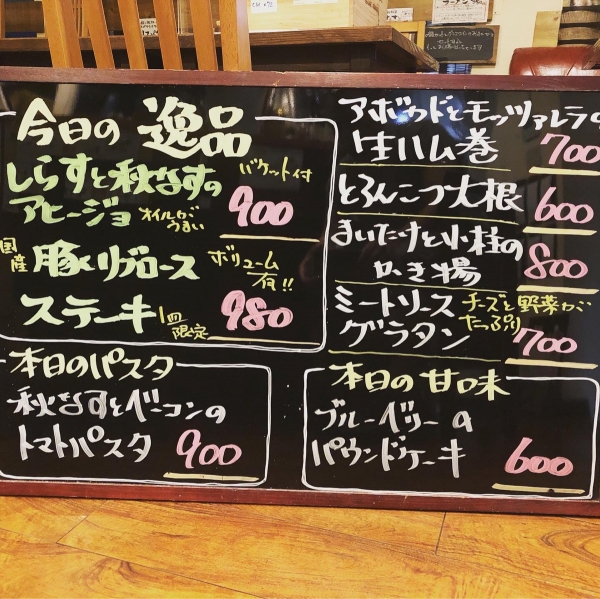 今日の 逸品
しらすと秋なすの
アヒージョ オイルがうまい バケット付 900
国産 豚リブロース
ステーキ 1皿限定 ボリューム有!! 980
本日のパスタ
秋なすとベーコンの
トマトパスタ 900
アボカドとモッツァレラの
生ハム巻 700
とろんこつ大根 600
まいたけと小柱の
かき揚 800
ミートソース
グラタン チーズと野菜がたっぷり 700
本日の甘味
ブルーベリーの
パウンドケーキ 600